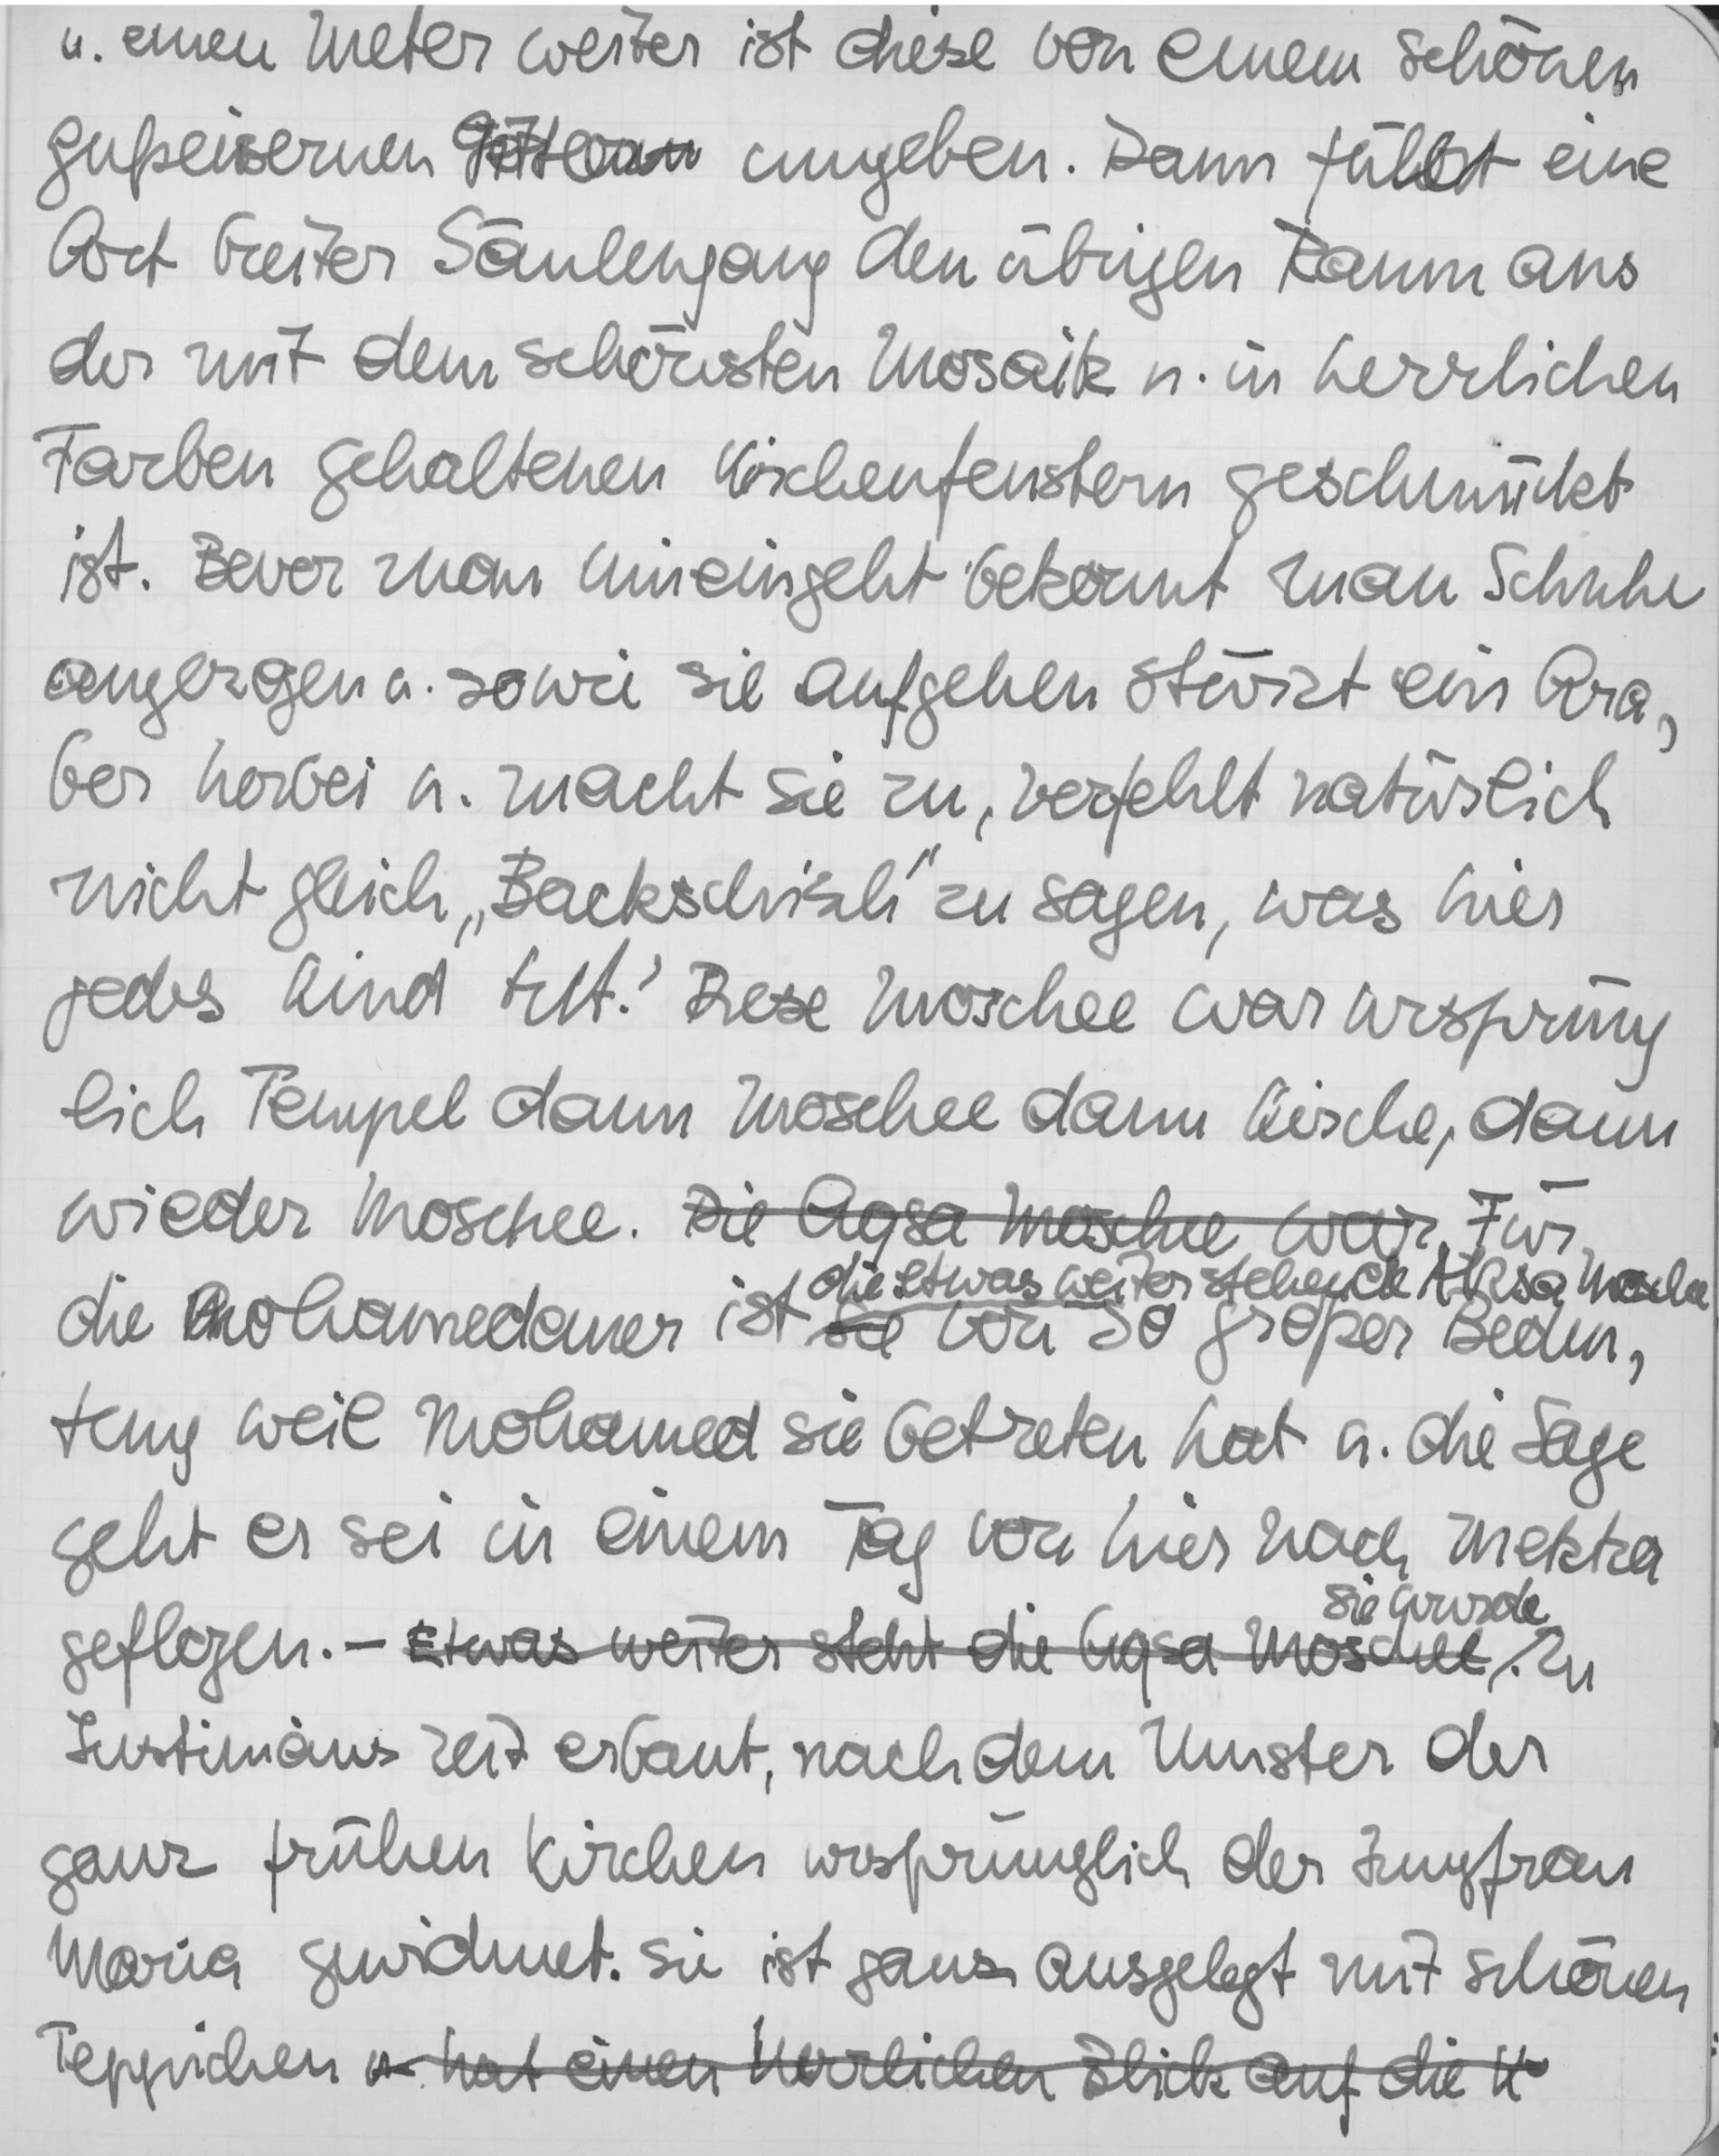 u. einen Meter weiter ist diese von einem schönen
gußeisernen Gitter umgeben. Dann füllt eine
Art breiter Säulengang den übrigen Raum aus
der mit dem schönsten Mosaik u. in herrlichen
Farben gehaltenen Kirchenfenstern geschmückt
ist. Bevor man hineingeht bekommt man Schuhe
angezogen u. sowie sie aufgehen stürzt ein Ara,
ber herbei u. macht sie zu, verfehlt natürlich
nicht gleich „Backschisch" zu sagen, was hier
jedes Kind tut.' Diese Moschee war ursprüng
lich Tempel dann Moschee dann Kirche, dann
wieder Moschee. Die Aqsa Moschee war. Für
die etwas weiter stehende Aksa Moschee
die Mohamedaner ist sie von so großer Bedeu,
tung weil Mohamed sie betreten hat u. die Sage
geht er sei in einem Tag von hier nach Mekka
sie wurde
geflogen. – Etwas weiter steht die Aqsa Moschee. Zu
Justinians Zeit erbaut, nach dem Muster der
ganz frühen Kirchen ursprünglich der Jungfrau
Maria gewidmet. Sie ist ganz ausgelegt mit schönen
Teppichen u. hat einen herrlichen Blick auf die